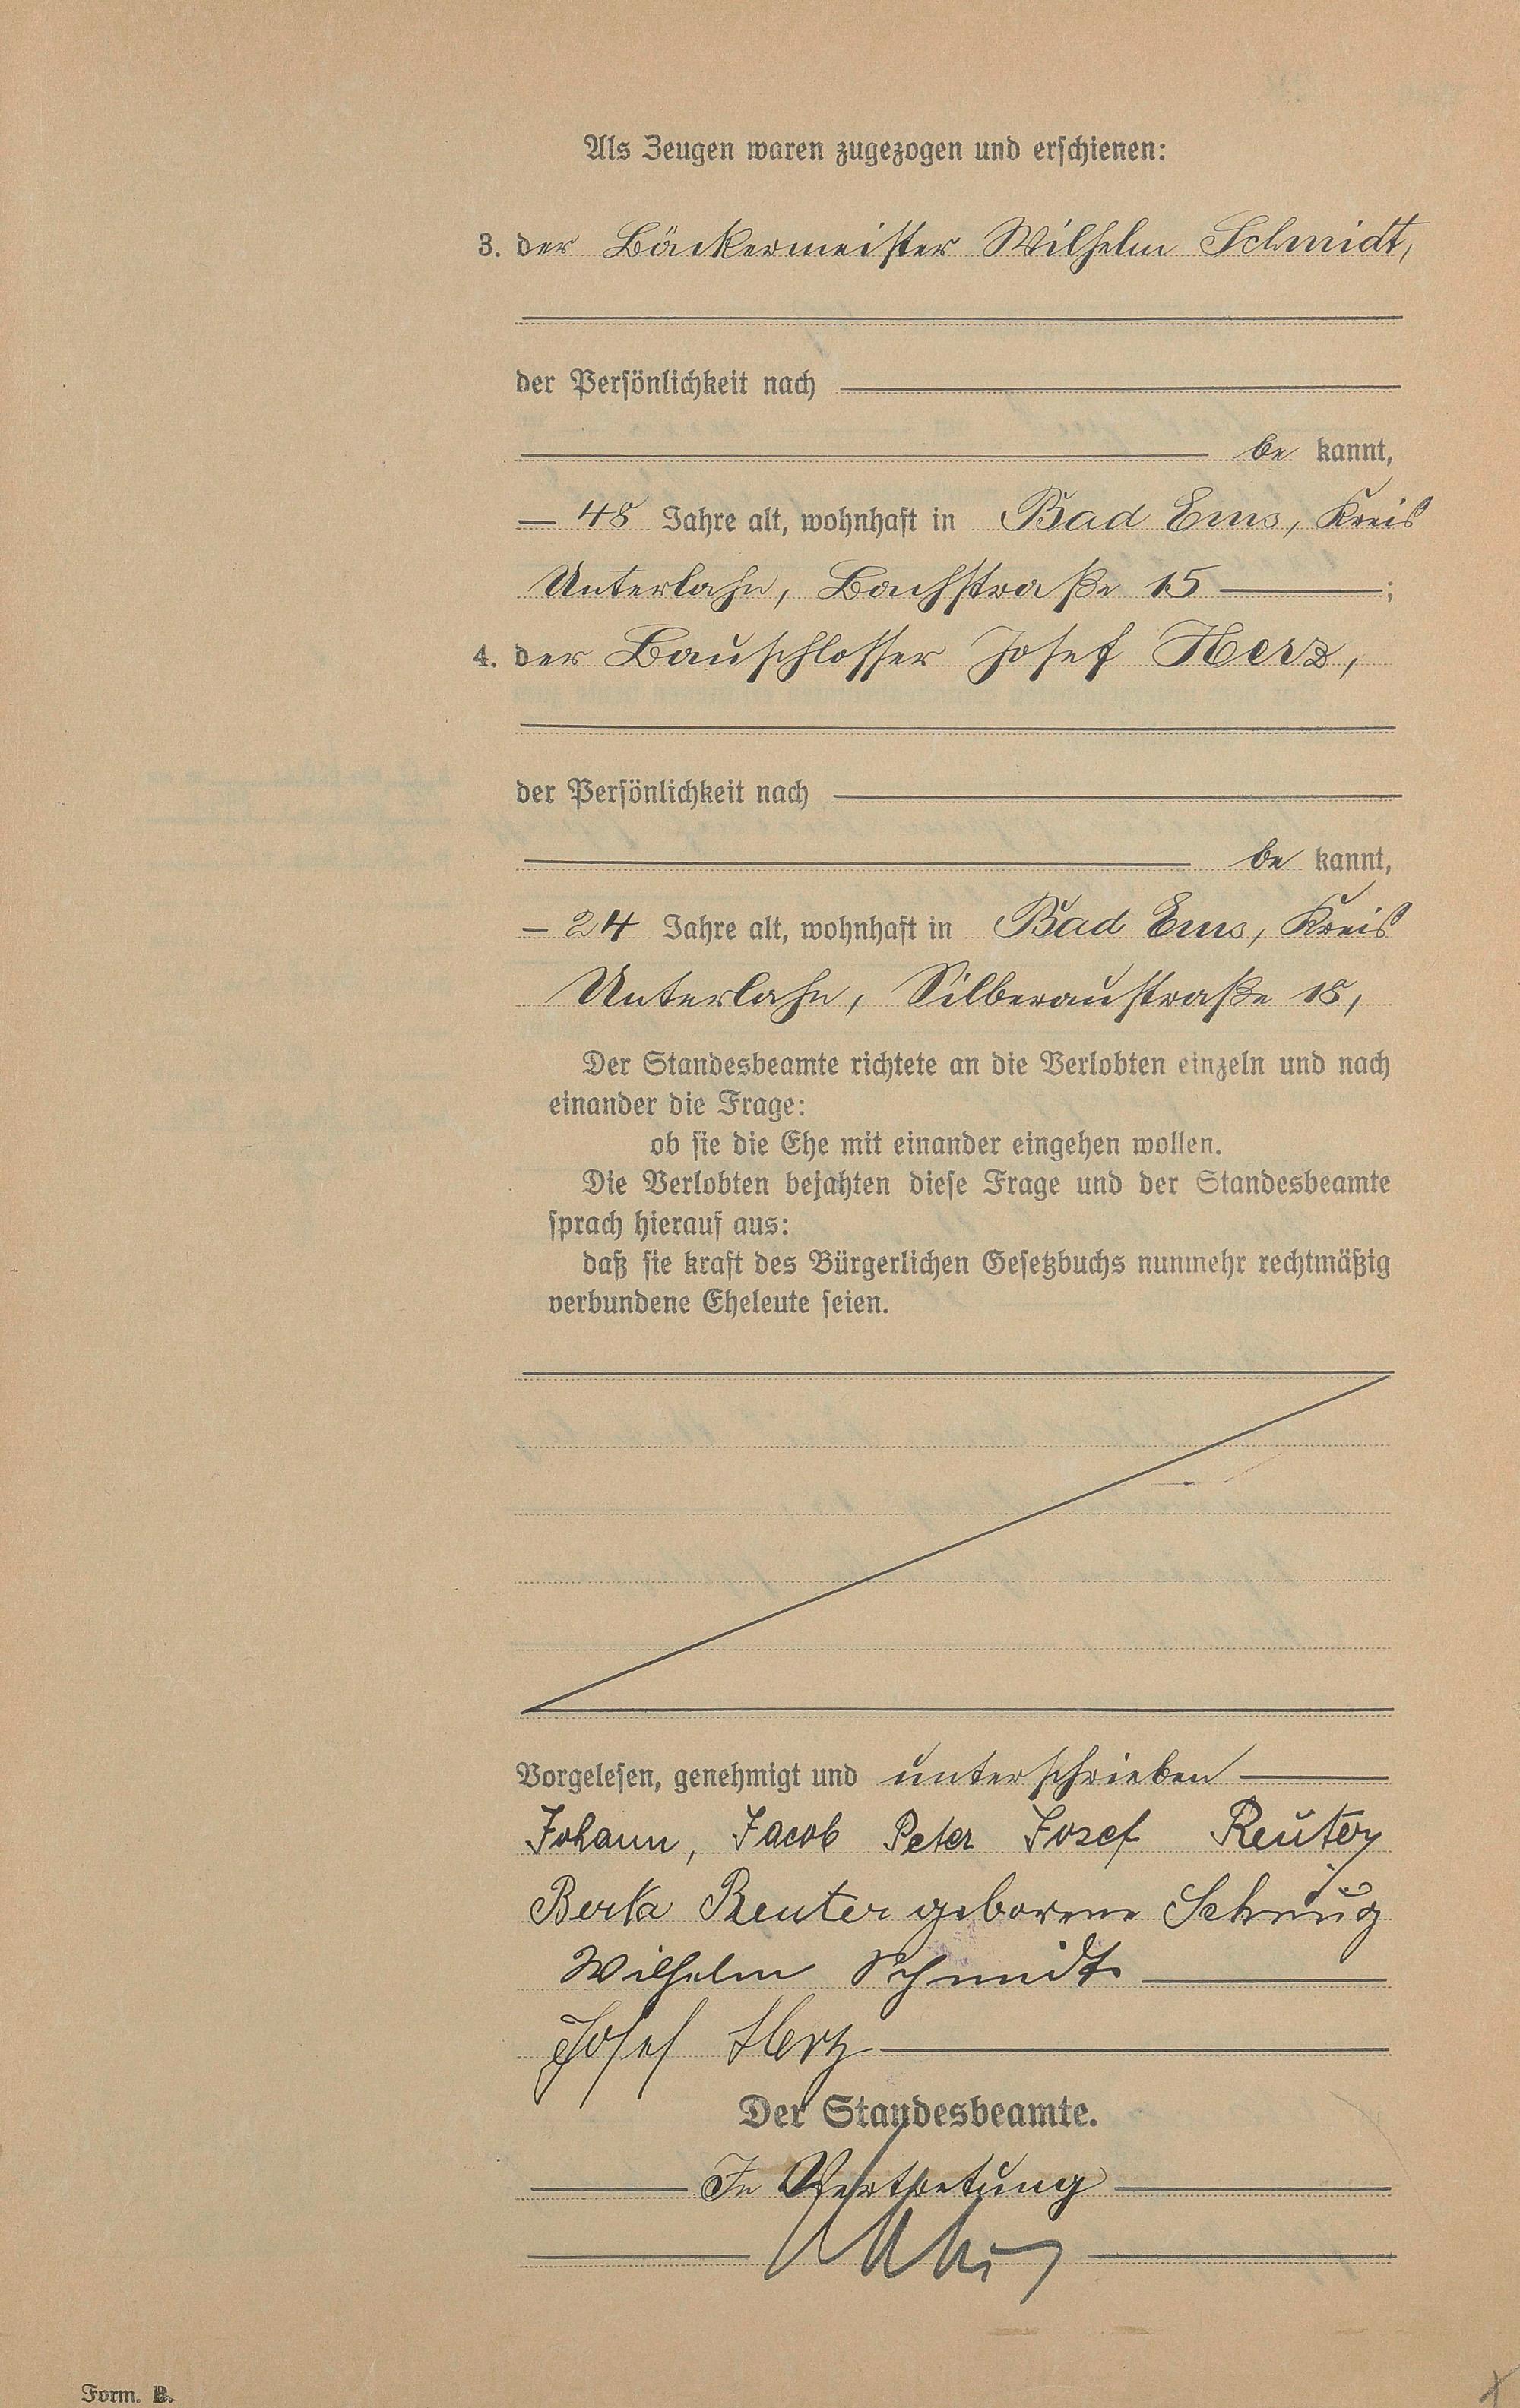 Als Zeugen waren zugezogen und erschienen:
3. der Bäckermeister Wilhelm Schmidt,
der Persönlichkeit nach
be kannt,
48 Jahre alt, wohnhaft in Bad Ems, Kreis
Unterlahn, Bachstraße 15 ;
4. der Bauschlosser Josef Herz,
der Persönlichkeit nach
be kannt,
24 Jahre alt, wohnhaft in Bad Ems, Kreis
Unterlahn, Silberaustraße 18,
Der Standesbeamte richtete an die Verlobten einzeln und nach
einander die Frage:
ob sie die Ehe mit einander eingehen wollen.
Die Verlobten bejahten diese Frage und der Standesbeamte
sprach hierauf aus:
daß sie kraft des Bürgerlichen Gesetzbuchs nunmehr rechtmäßig
verbundene Eheleute seien.
Vorgelesen, genehmigt und unterschrieben
Johann, Jacob Peter Josef Reuter
Berta Reuter geborene
Wilhelm Schmidt
Josef Herz
Der Standesbeamte.
In Vertretung
Form. B.